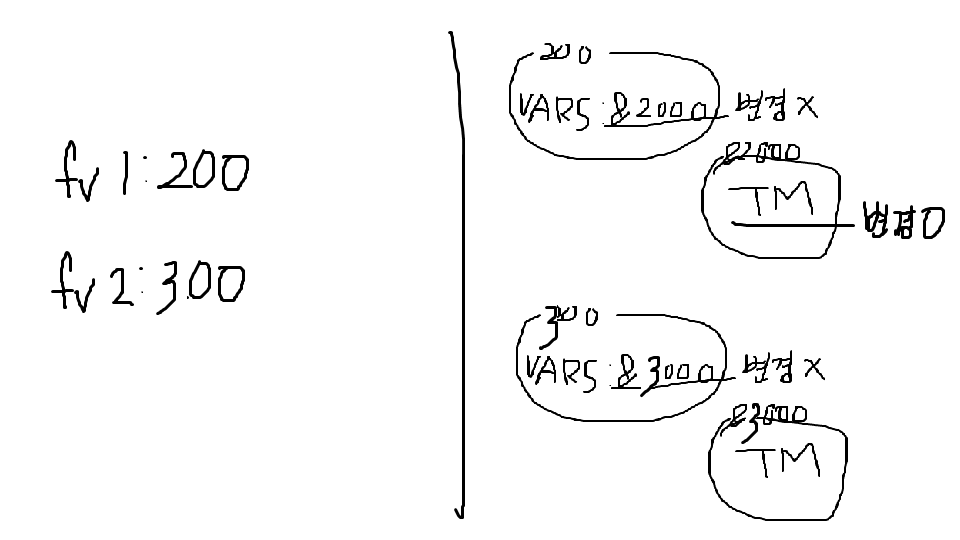 fv 1:200
fv 2:300
200
VARS:&2000 변경X
&2000
TM
변경O
300
VARS:&3000 변경X
&3000
TM